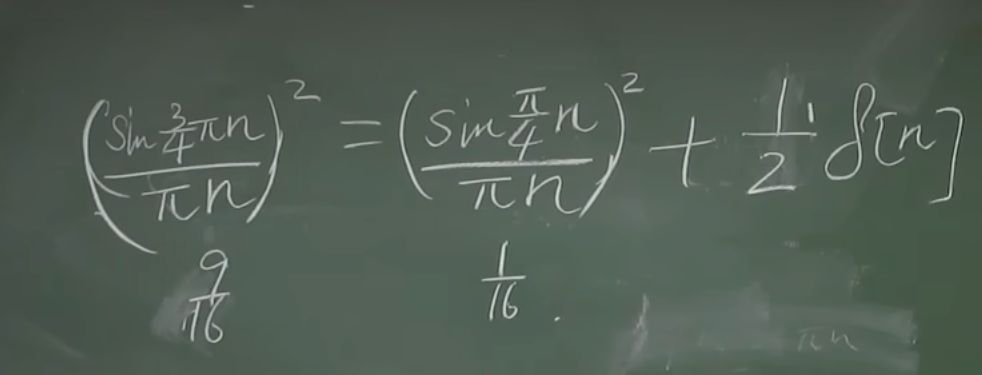 (sin 3/4 πn / πn)² = (sin π/4 n / πn)² + 1/2 δ[n]
9/16 1/16 .
πn